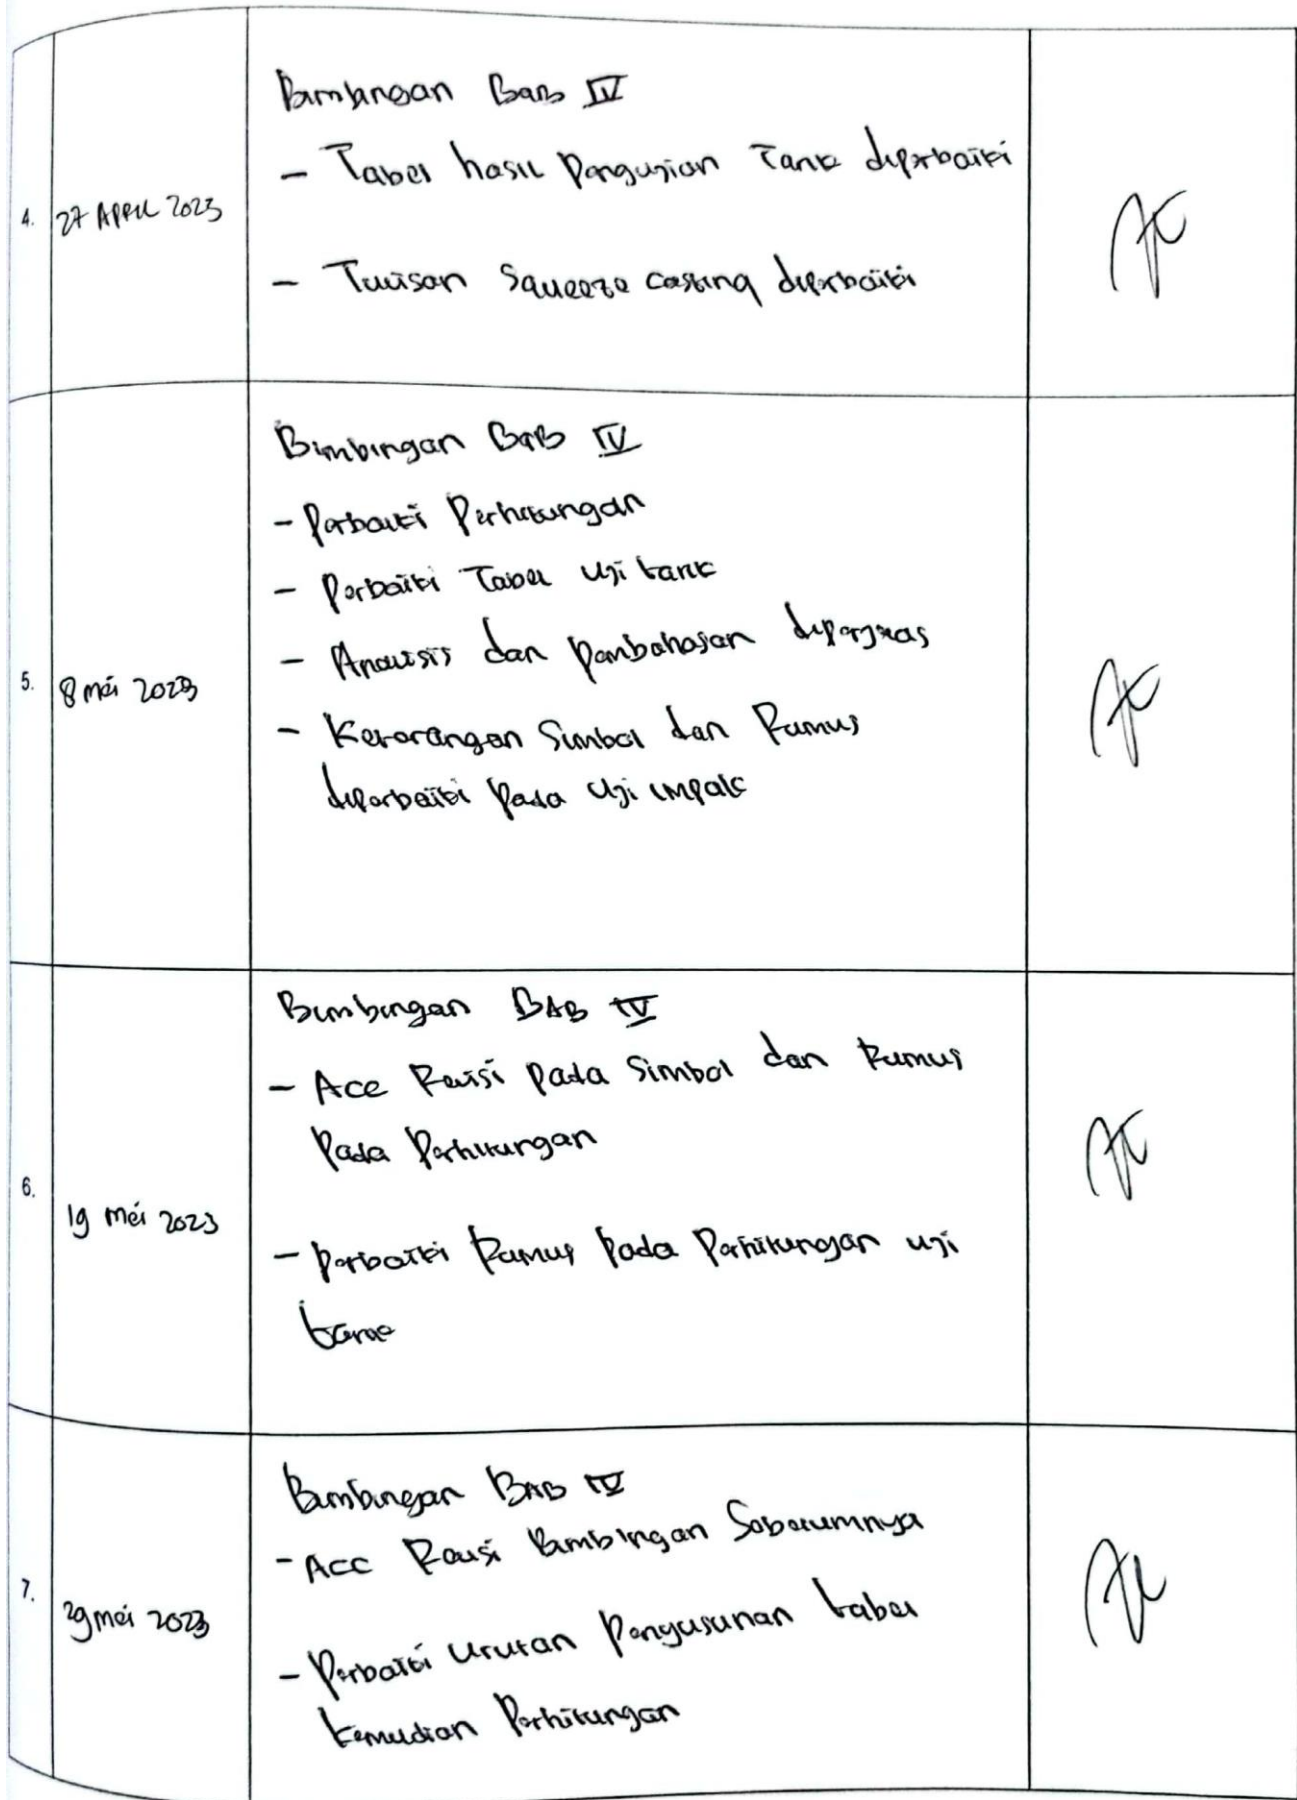 Bimbingan Bab IV
- Tabel hasil pengujian Tarik diperbaiki
4.
27 APRIL 2023
- Tulisan Squeeze casting diperbaiki
Bimbingan BaB IV
- Perbaiki Perhitungan
- Perbaiki Tabel Uji tarik
- Analisis dan pembahasan diperjelas
5.
8 mei 2023
- Keterangan Simbol dan Rumus
diperbaiki pada Uji impak
Bimbingan BAB IV
- Acc Revisi pada Simbol dan Rumus
Pada Perhitungan
6.
19 mei 2023
- Perbaiki Rumus Pada Perhitungan uji
tarik
Bimbingan BAB IV
- Acc Revisi Bimbingan Sebelumnya
7.
29 mei 2023
- Perbaiki Urutan Penyusunan tabel
kemudian Perhitungan